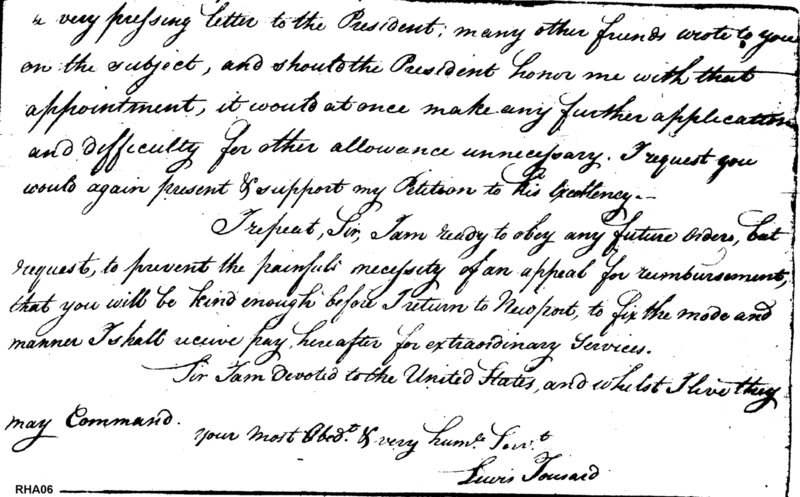 a very pressing letter to the President; many other friends wrote to you
on the subject, and should the President honor me with that
appointment, it would at once make any further application
and difficulty for other allowance unnecessary. I request you
would again present & support my Petition to his Excellency.—
I repeat, Sir, I am ready to obey any future orders, but
request, to prevent the painfull necessity of an appeal for reimbursement,
that you will be kind enough before I return to Newport, to fix the mode and
manner I shall receive pay, hereafter for extraordinary Services.
Sir I am Devoted to the United States, and whilst I live they
may Command.
Your most Obedt. & very humle. Servt.
Lewis Tousard
RHA06